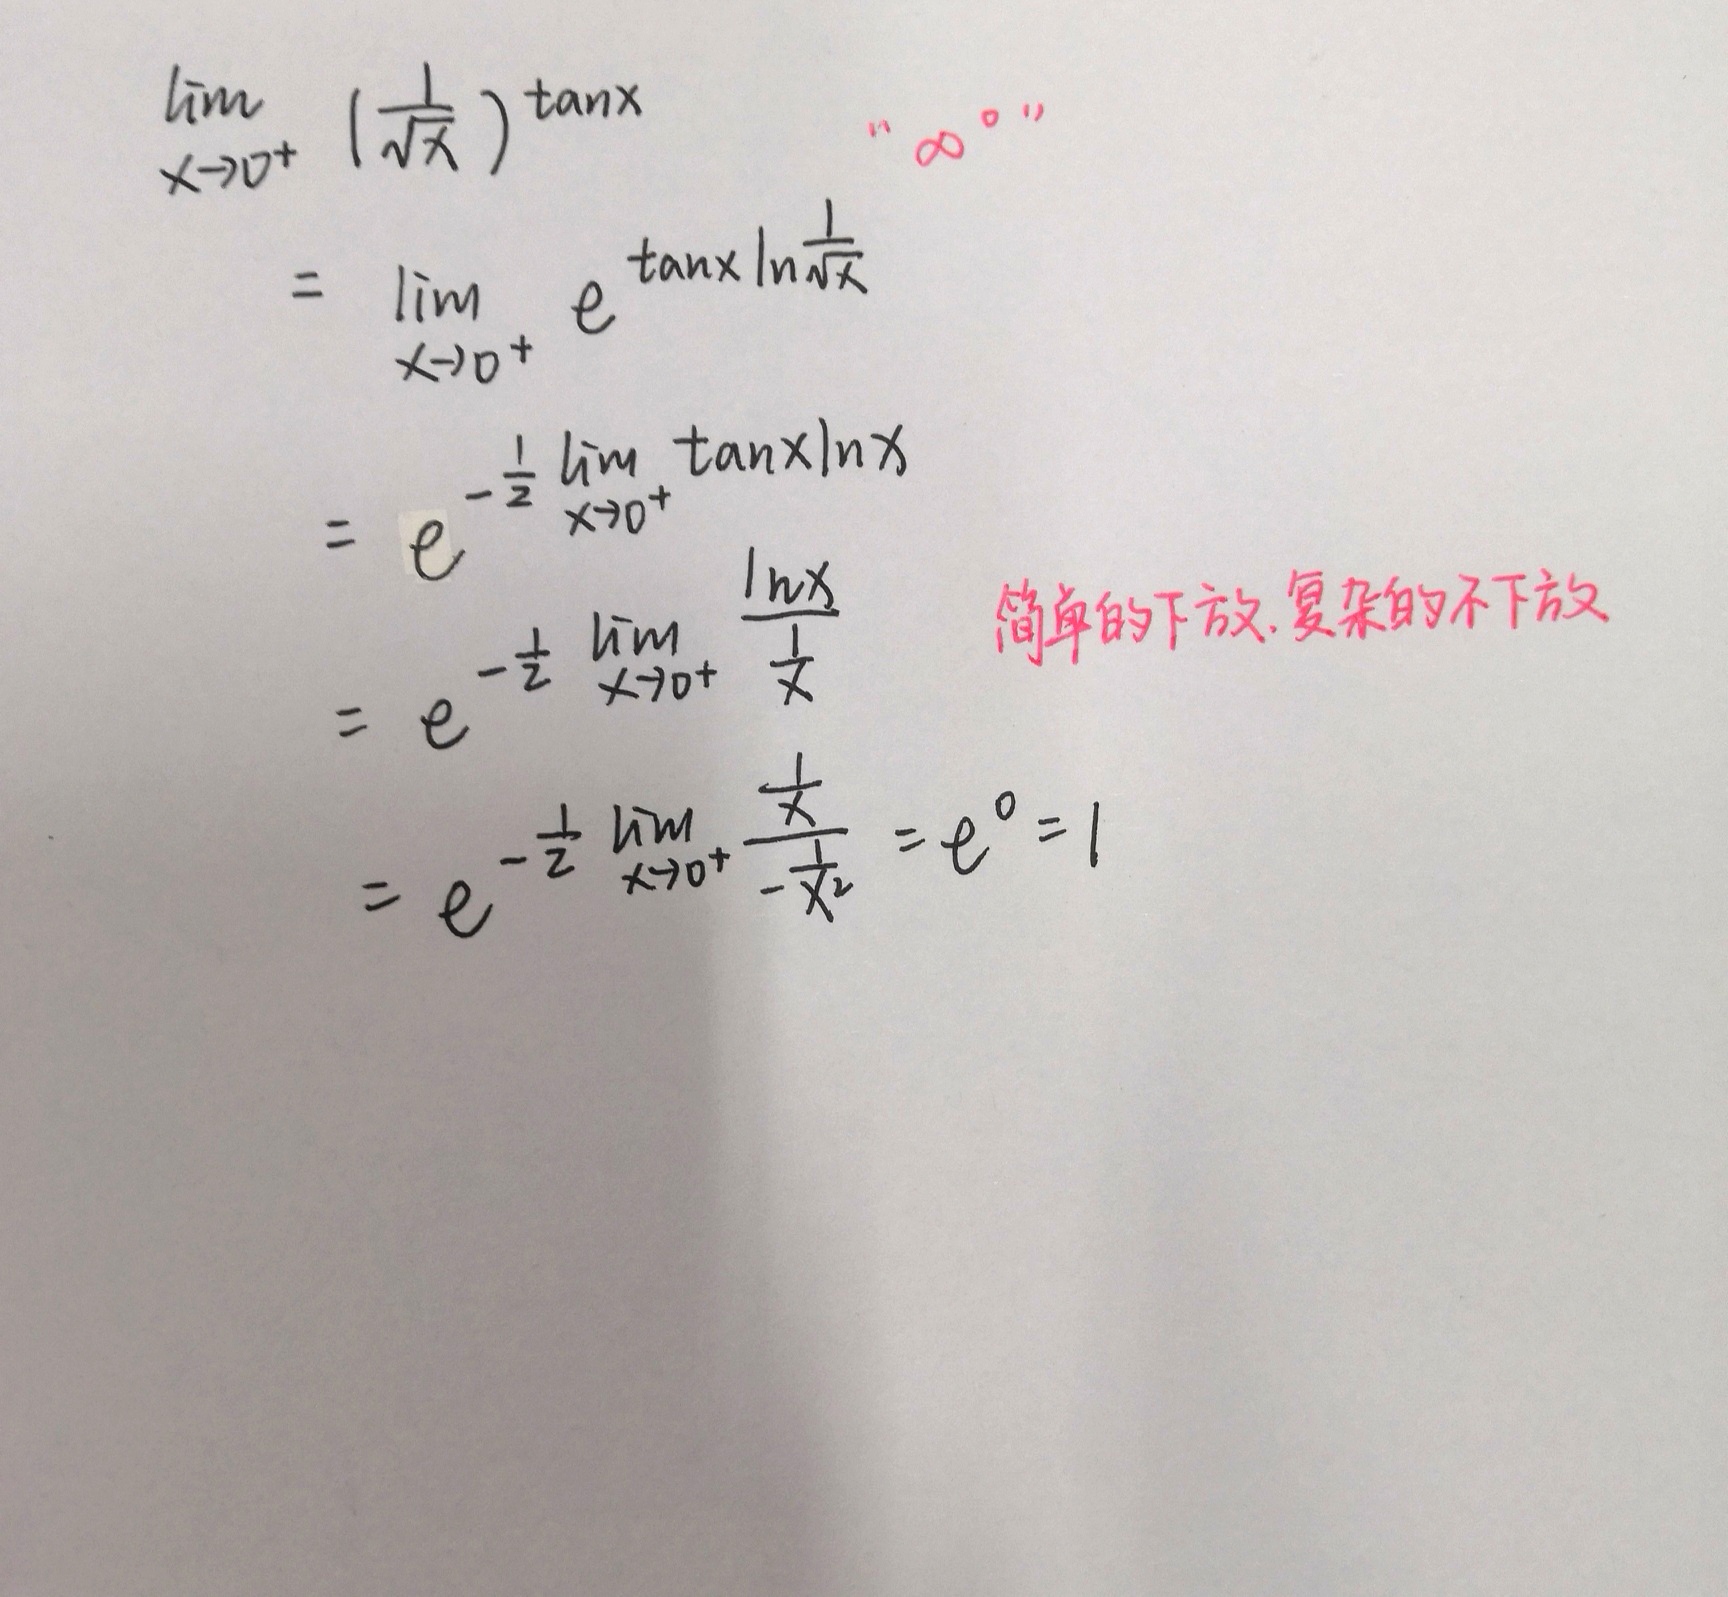 lim x→0⁺ (1/√x)^tanx “∞⁰”
= lim x→0⁺ e^(tanx ln 1/√x)
= e^(-1/2 lim x→0⁺ tanx lnx)
= e^(-1/2 lim x→0⁺ lnx/(1/x)) 简单的下放.复杂的不下放
= e^(-1/2 lim x→0⁺ (1/x)/(-1/x²)) = e⁰ = 1